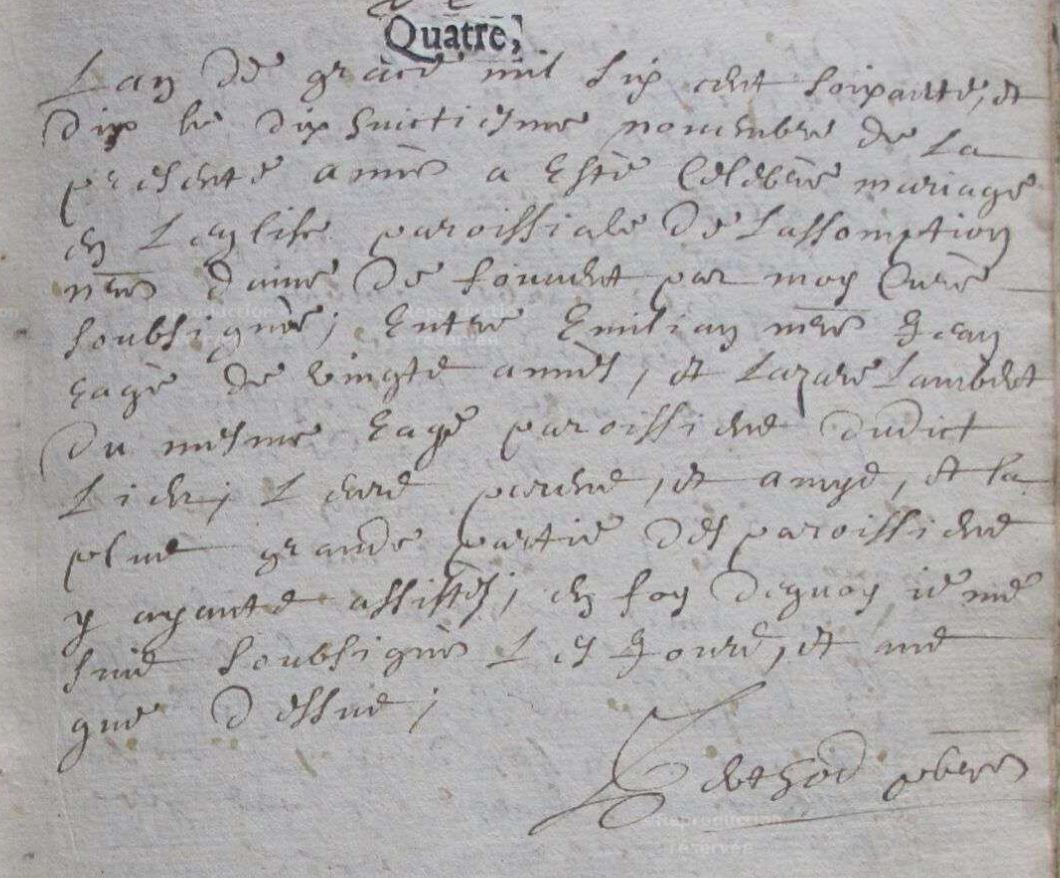 Quatre,
Lan de grace mil six cent soixante, et
dix le dix huictiesme novembre de La
presente annee a esté Celebré mariage
en Leglise paroissiale de Lassomption
nre dame de par moy Curé
soubsigné; Entre Emilian Jean
eagé de vingte années, et Lazare Lambert
du mesme eage paroissiens dudict
Lieu; Leurs parens, et amys, et la
plus grande partie des paroissiens
y ayants assistés; en foy dequoy ie me
suis soubsigné Les Jours, et ans
que dessus;
pbre
Reproduction
réservée